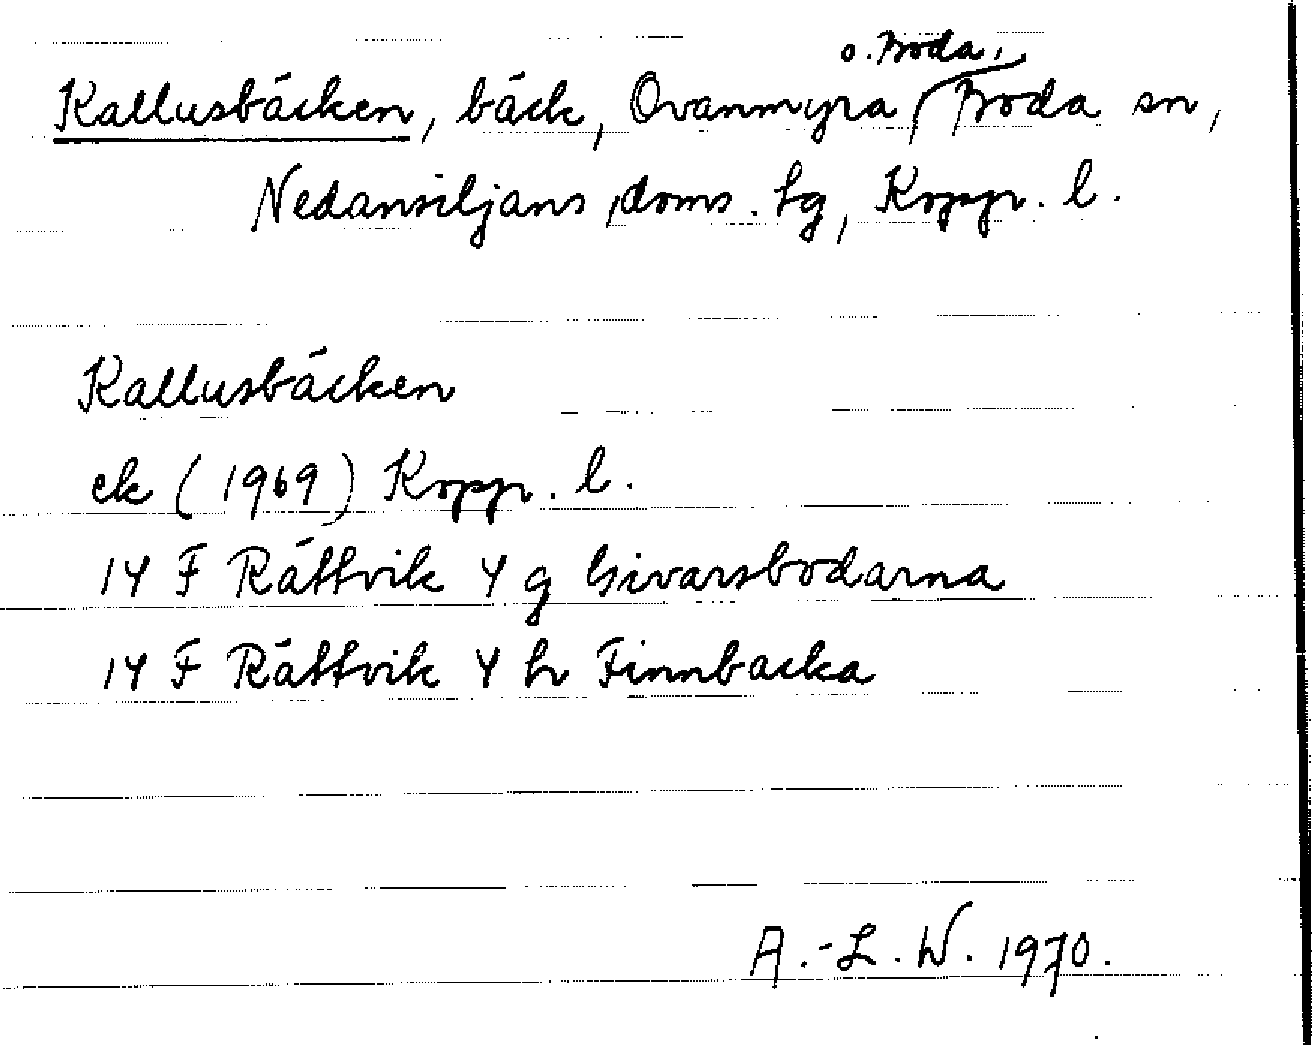 Kallusbäcken, bäck, Ovanmyra o. Boda, Boda sn,
Nedansiljans doms. hg, Kopp. l.
Kallusbäcken
ek (1969) Kopp. l.
14 F Rättvik 4 g Givarsbodarna
14 F Rättvik 4 h Finnbacka
A.-L. W. 1970.